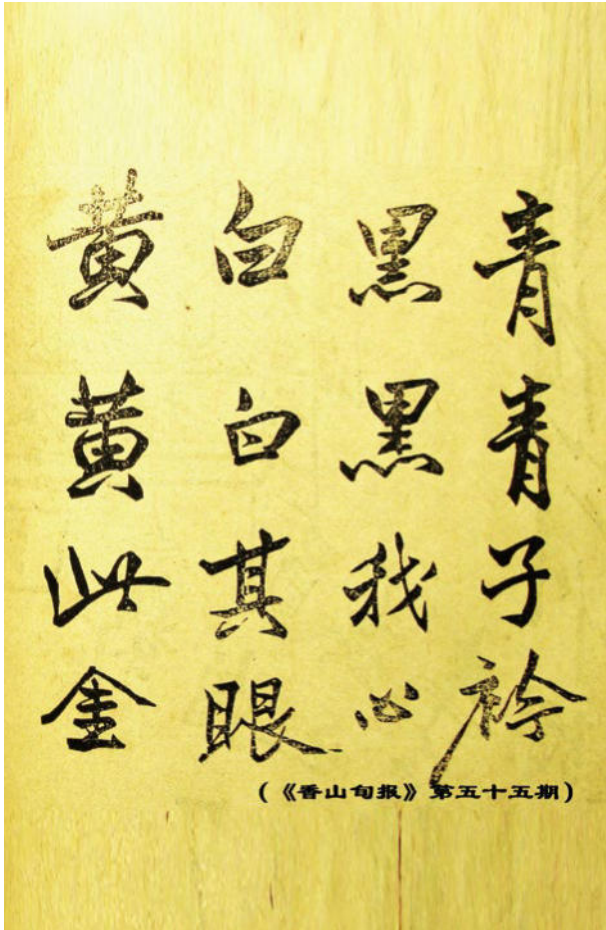 青青子衿
黑黑我心
白白其眼
黄黄此金
(《香山旬报》第五十五期)